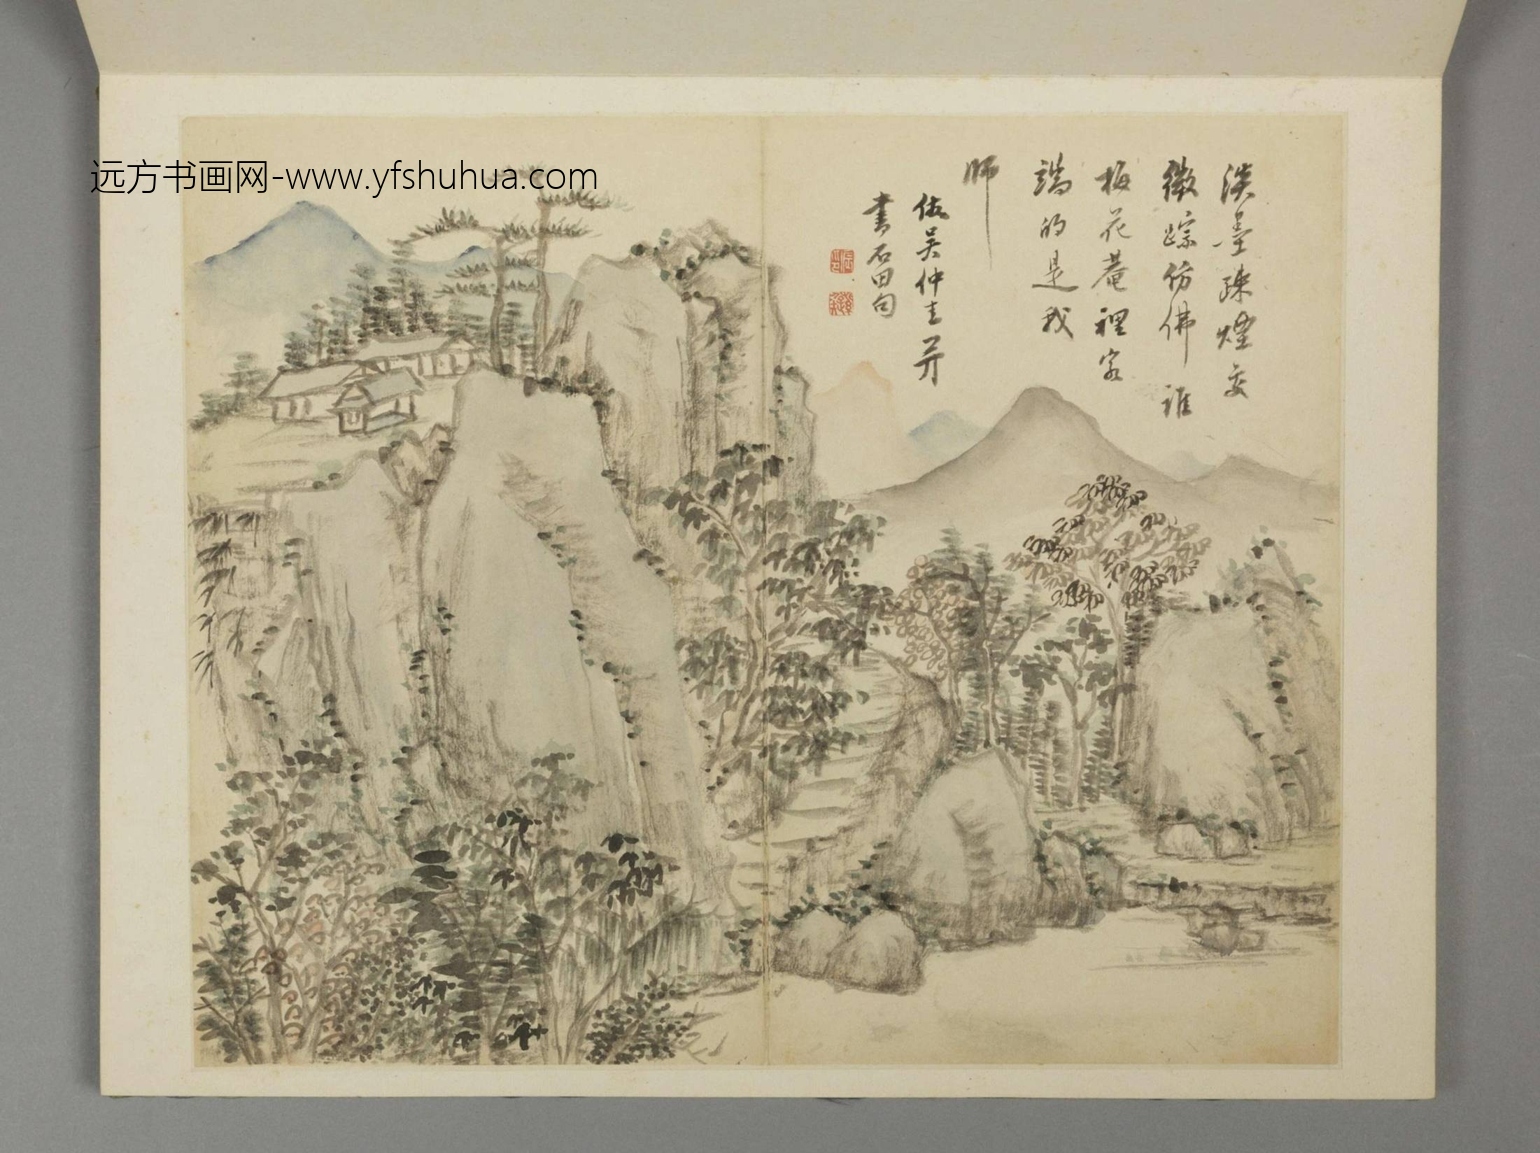 远方书画网-www.yfshuhua.com
淡墨疎煙交
微踪仿佛誰
梅花菴裡客
端的是我
師
倣吴仲圭并
書石田句